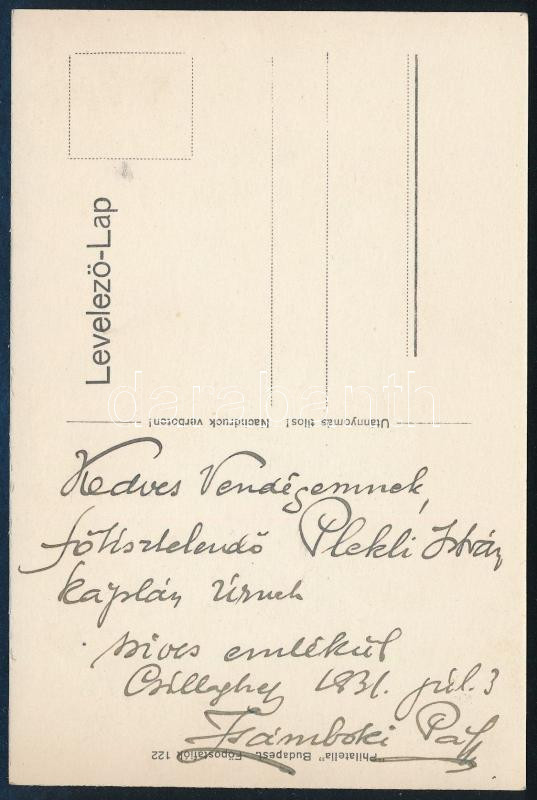 Levelező-Lap
Utánnyomás tilos! Nachdruck verboten!
darabanth
Kedves Vendégemnek,
főtisztelendő Plekli István
káplán Úrnek
szives emlékül
Csillaghegy 1931. júl. 3
Zsámboki Pál
"Philatelia" Budapest. Főpostafiók 122